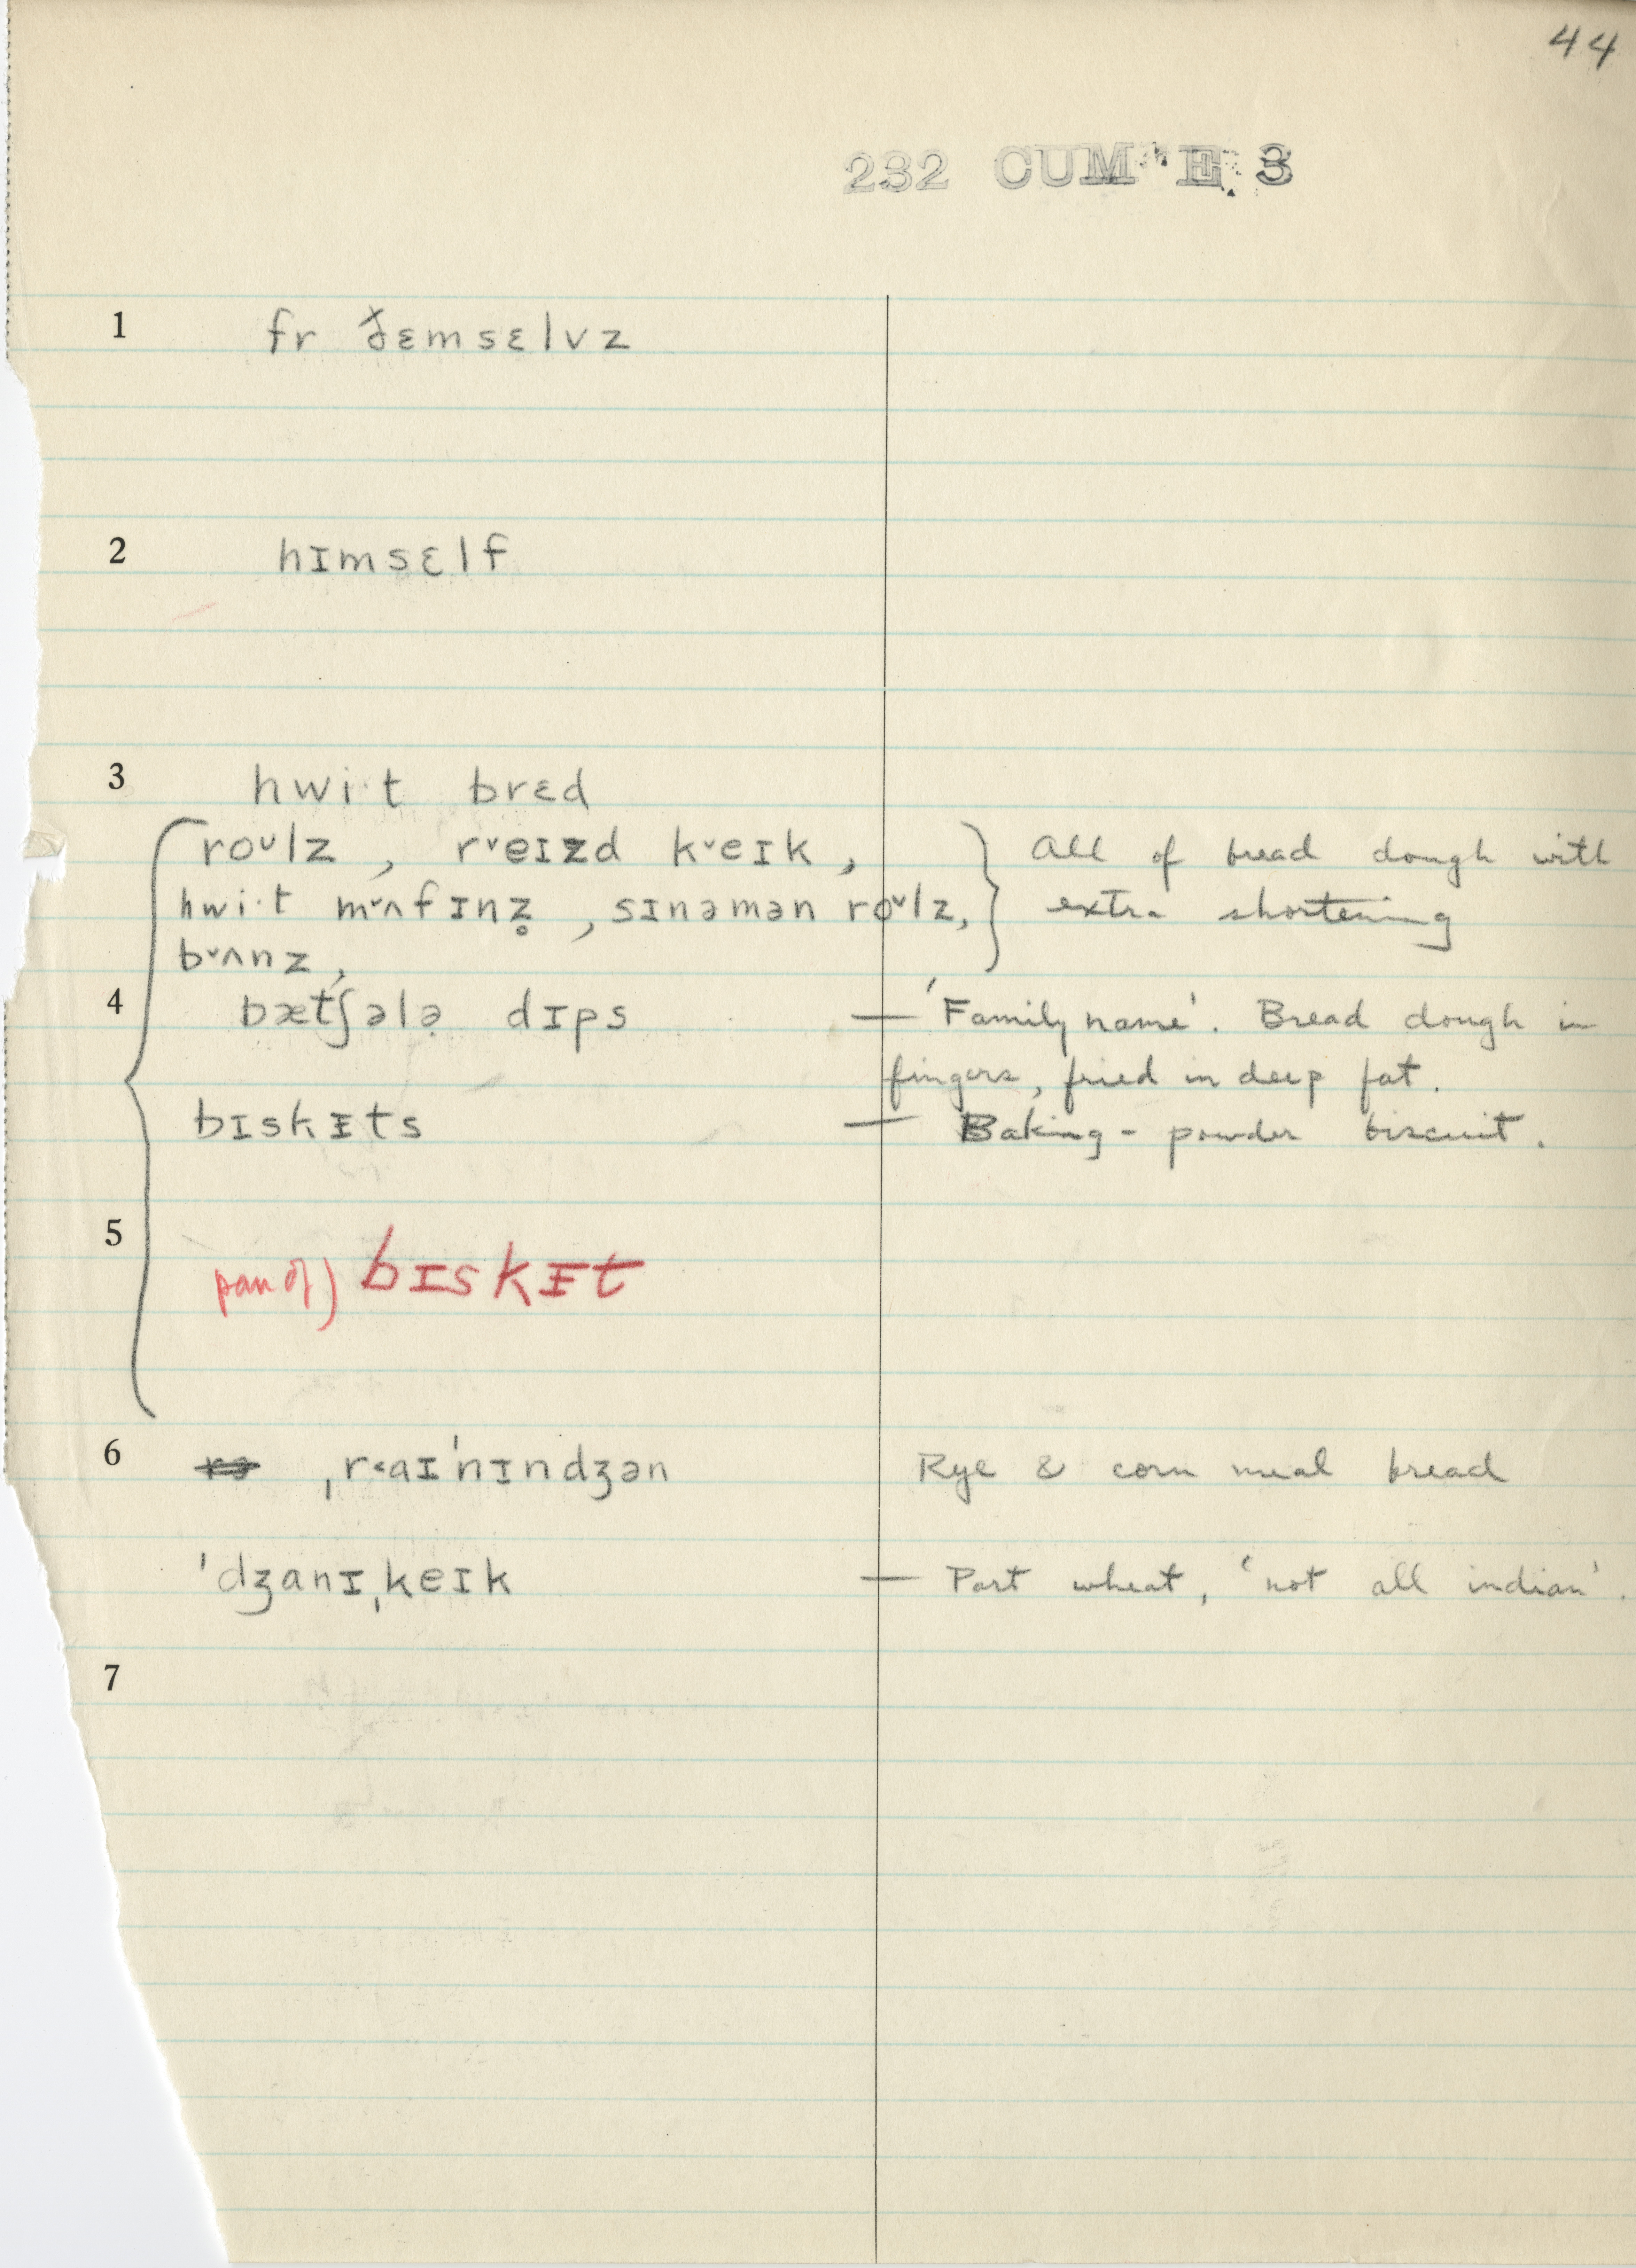 44
232 CUM E 3
1 fr ðɛmsɛlvz
2 hɪmsɛlf
3 hwi·t brɛd
roᴜlz , r˅eɪzd k˅eɪk , All of bread dough with
hwi·t m˅ʌfɪnz̥ , sɪnəmən roᴜlz, extra shortening
b˅ʌnz ,
4 bætʃələ̣ dɪps — 'Family name'. Bread dough in
fingers, fried in deep fat.
bɪskɪts — Baking-powder biscuit.
5 pan of) bɪskɪt
6 ˌr˂aɪˈnɪndʒən Rye & corn meal bread
ˈdʒanɪˌkeɪk — Part wheat, 'not all indian'.
7